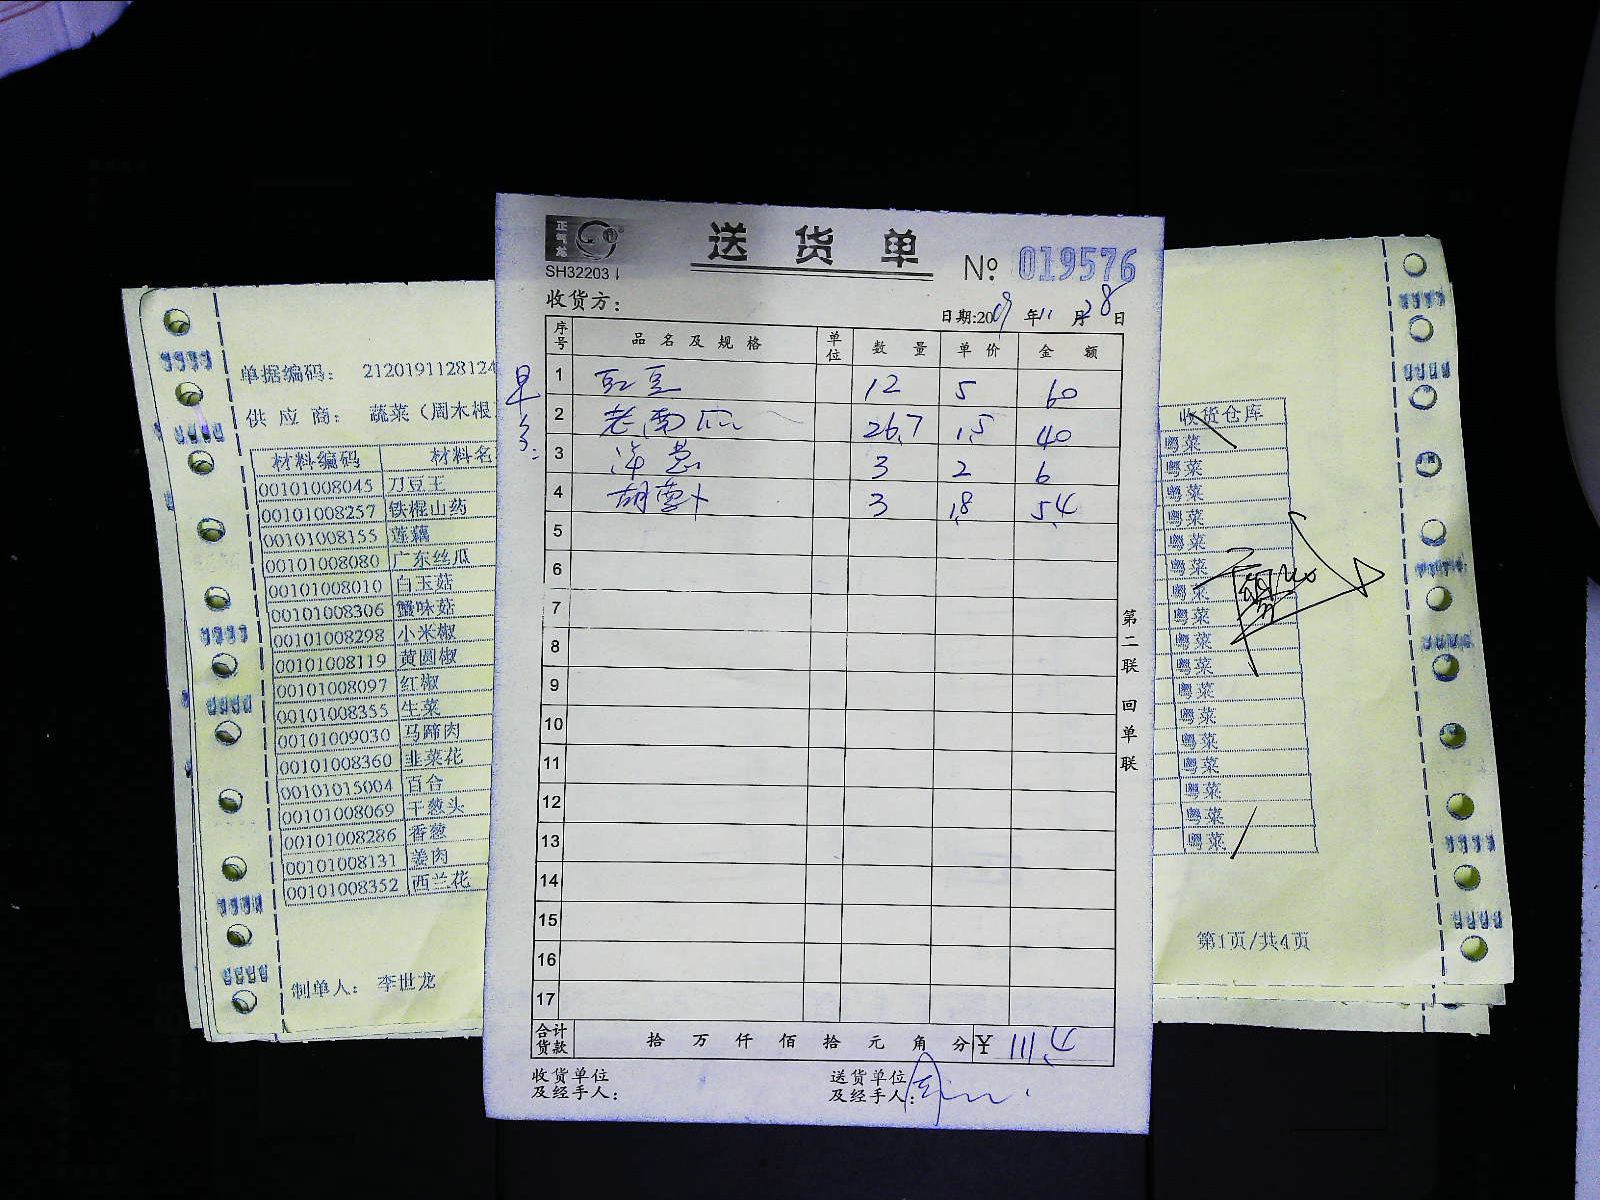 正气龙
送 货 单
SH32203
№ 019576
收货方：
日期:2019 年 11 月 28 日
序号 品 名 及 规 格 单位 数 量 单 价 金 额
1 豇豆 12 5 60
2 老南瓜 26.7 1.5 40
3 洋葱 3 2 6
4 胡萝卜 3 1.8 5.4
5
6
7
8
9
10
11
12
13
14
15
16
17
合计货款 拾 万 仟 佰 拾 元 角 分 ¥ 111.4
收货单位及经手人：
送货单位及经手人：
第二联 回单联
单据编码： 2120191128124
供 应 商： 蔬菜（周木根
材料编码 材料名
00101008045 刀豆王
00101008257 铁棍山药
00101008155 莲藕
00101008080 广东丝瓜
00101008010 白玉菇
00101008306 蟹味菇
00101008298 小米椒
00101008119 黄圆椒
00101008097 红椒
00101008355 生菜
00101009030 马蹄肉
00101008360 韭菜花
00101015004 百合
00101008069 干葱头
00101008286 香葱
00101008131 姜肉
00101008352 西兰花
制单人： 李世龙
收货仓库
粤菜
粤菜
粤菜
粤菜
粤菜
粤菜
粤菜
粤菜
粤菜
粤菜
粤菜
粤菜
粤菜
粤菜
粤菜
粤菜
粤菜
第1页/共4页